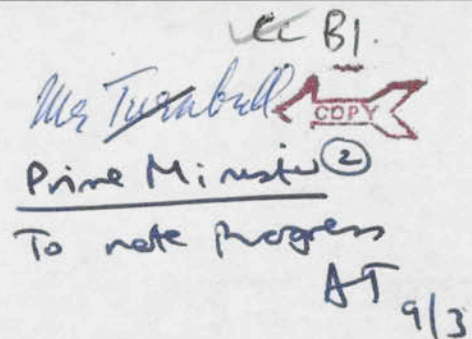 cc BI.
Mr Turnbull
COPY
Prime Minister ②
To note progress
AT 9/3